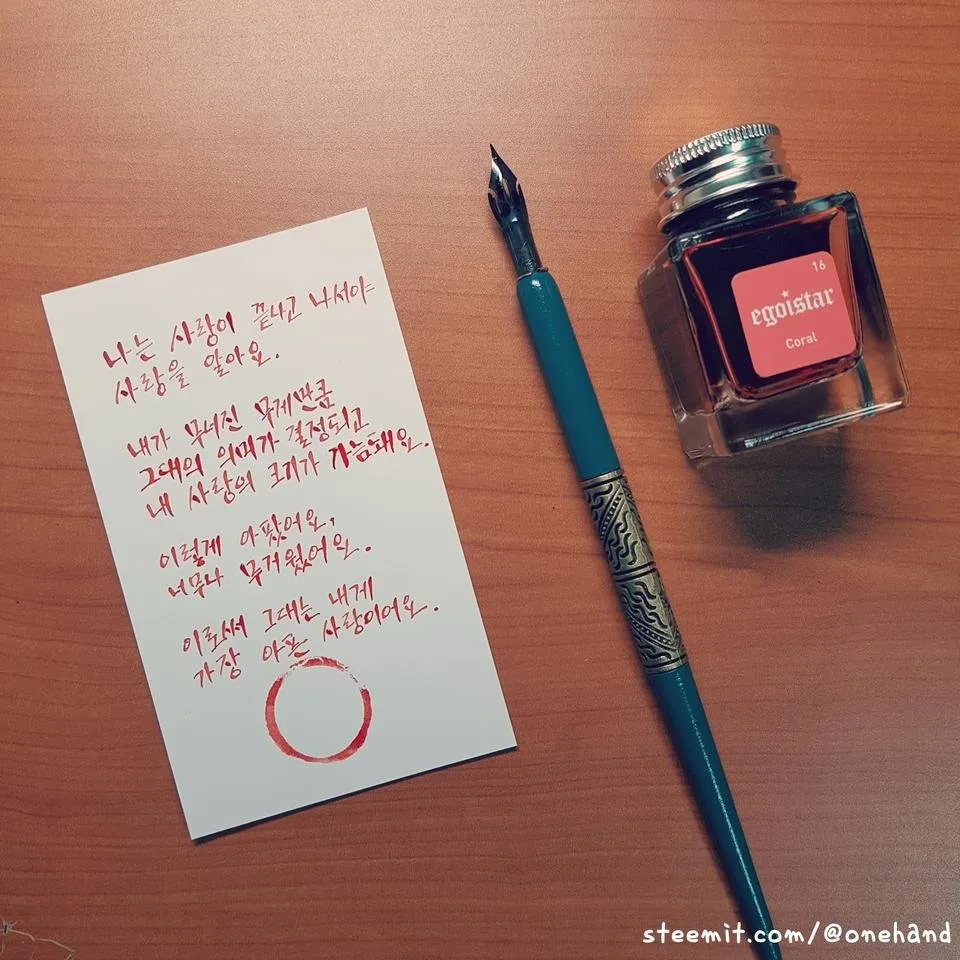 나는 사랑이 끝나고 나서야
사랑을 알아요.
내가 무너진 무게만큼
그대의 의미가 결정되고
내 사랑의 크기가 가늠돼요.
이렇게 아팠어요,
너무나 무거웠어요.
이로써 그대는 내게
가장 아픈 사랑이어요.
16
egoistar
Coral
steemit.com/@onehand